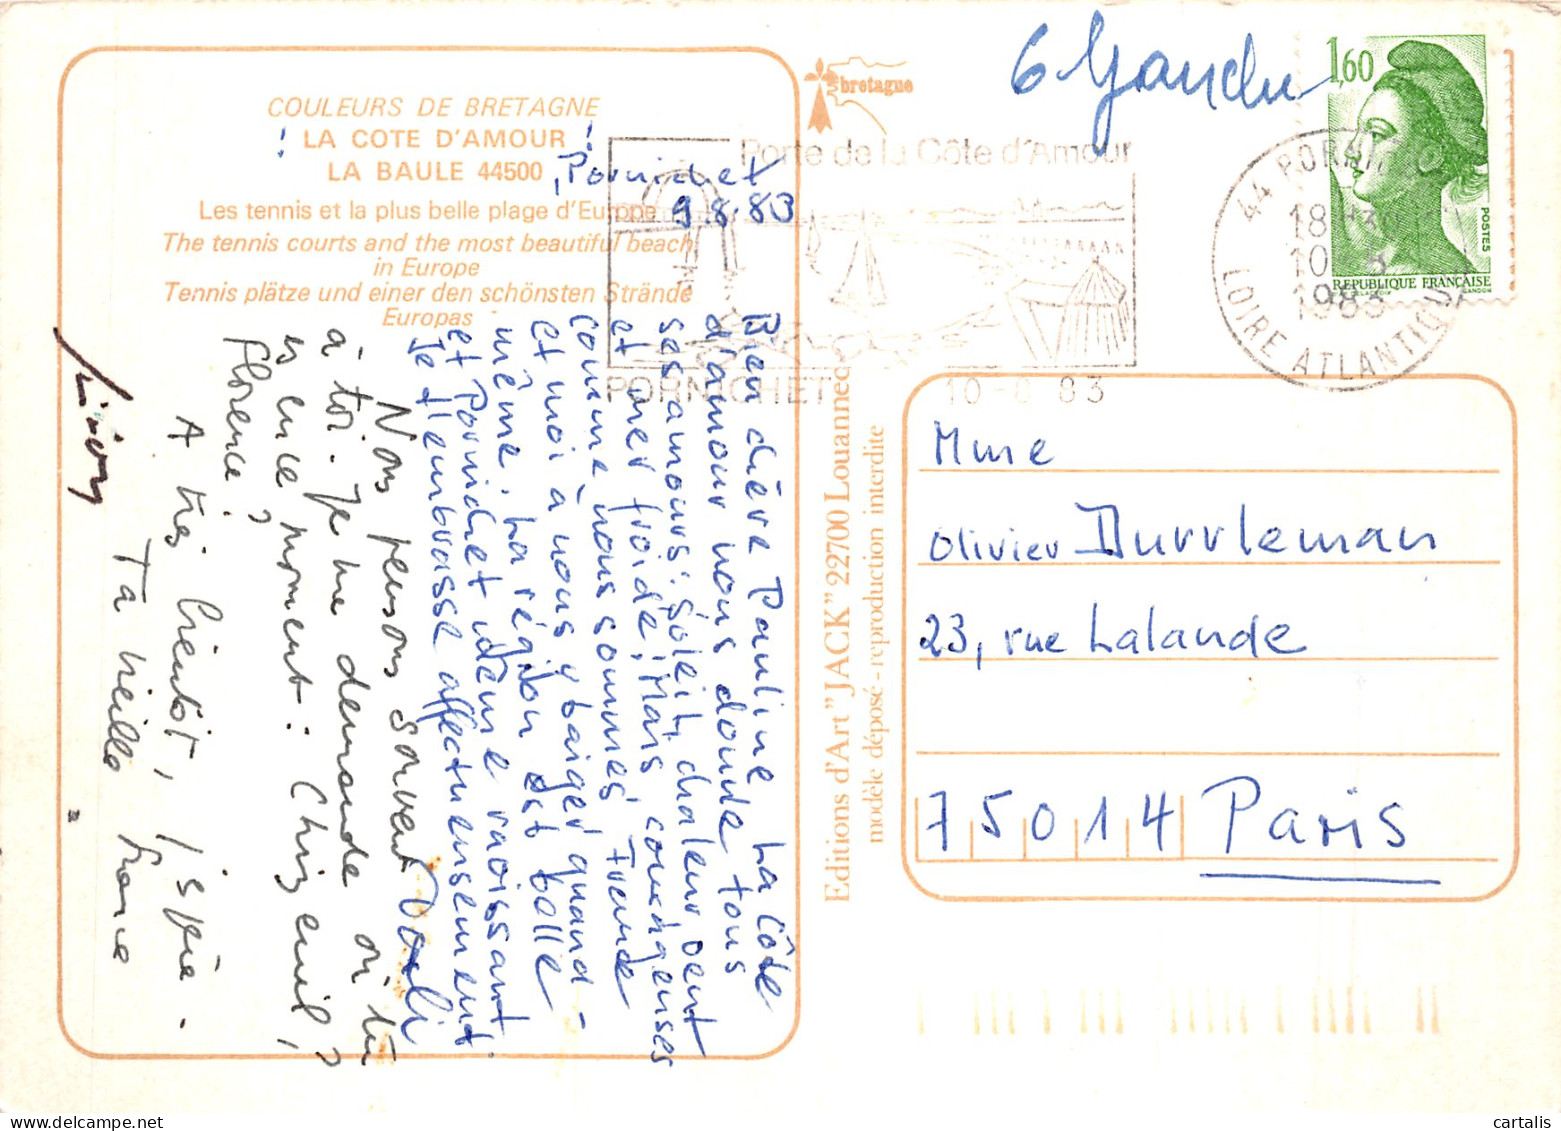 COULEURS DE BRETAGNE
! LA COTE D'AMOUR !
LA BAULE 44500
Les tennis et la plus belle plage d'Europe
The tennis courts and the most beautiful beach
in Europe
Tennis plätze und einer den schönsten Strände
Europas
bretagne
6 Gauche
1,60
POSTES
REPUBLIQUE FRANÇAISE
DELACROIX GANDON
Porte de la Côte d'Amour
PORNICHET 10-8 83
44 PORNICHET
18H
10-8
1983
LOIRE ATLANTIQUE
Pornichet
9.8.83
Bien chère Pauline La Côte
d'amour nous donne tous
ses amours: Soleil, chaleur vent
et mer froide; Mais courageuses
comme nous sommes Trende
et moi à nous y baigner quand-
même. La région est belle
et Pornichet idem e ravissant.
Je t'embrasse affectueusement
Douli
Nous pensons souvent
à toi. Je me demande où tu
es en ce moment: Chizeuil,
florence?
A très bientôt, j'espère.
Ta vieille
Editions d'Art "JACK" 22700 Louannec
modèle déposé - reproduction interdite
Mme
Olivier Durrleman
23, rue Lalande
75014 Paris
cartalis